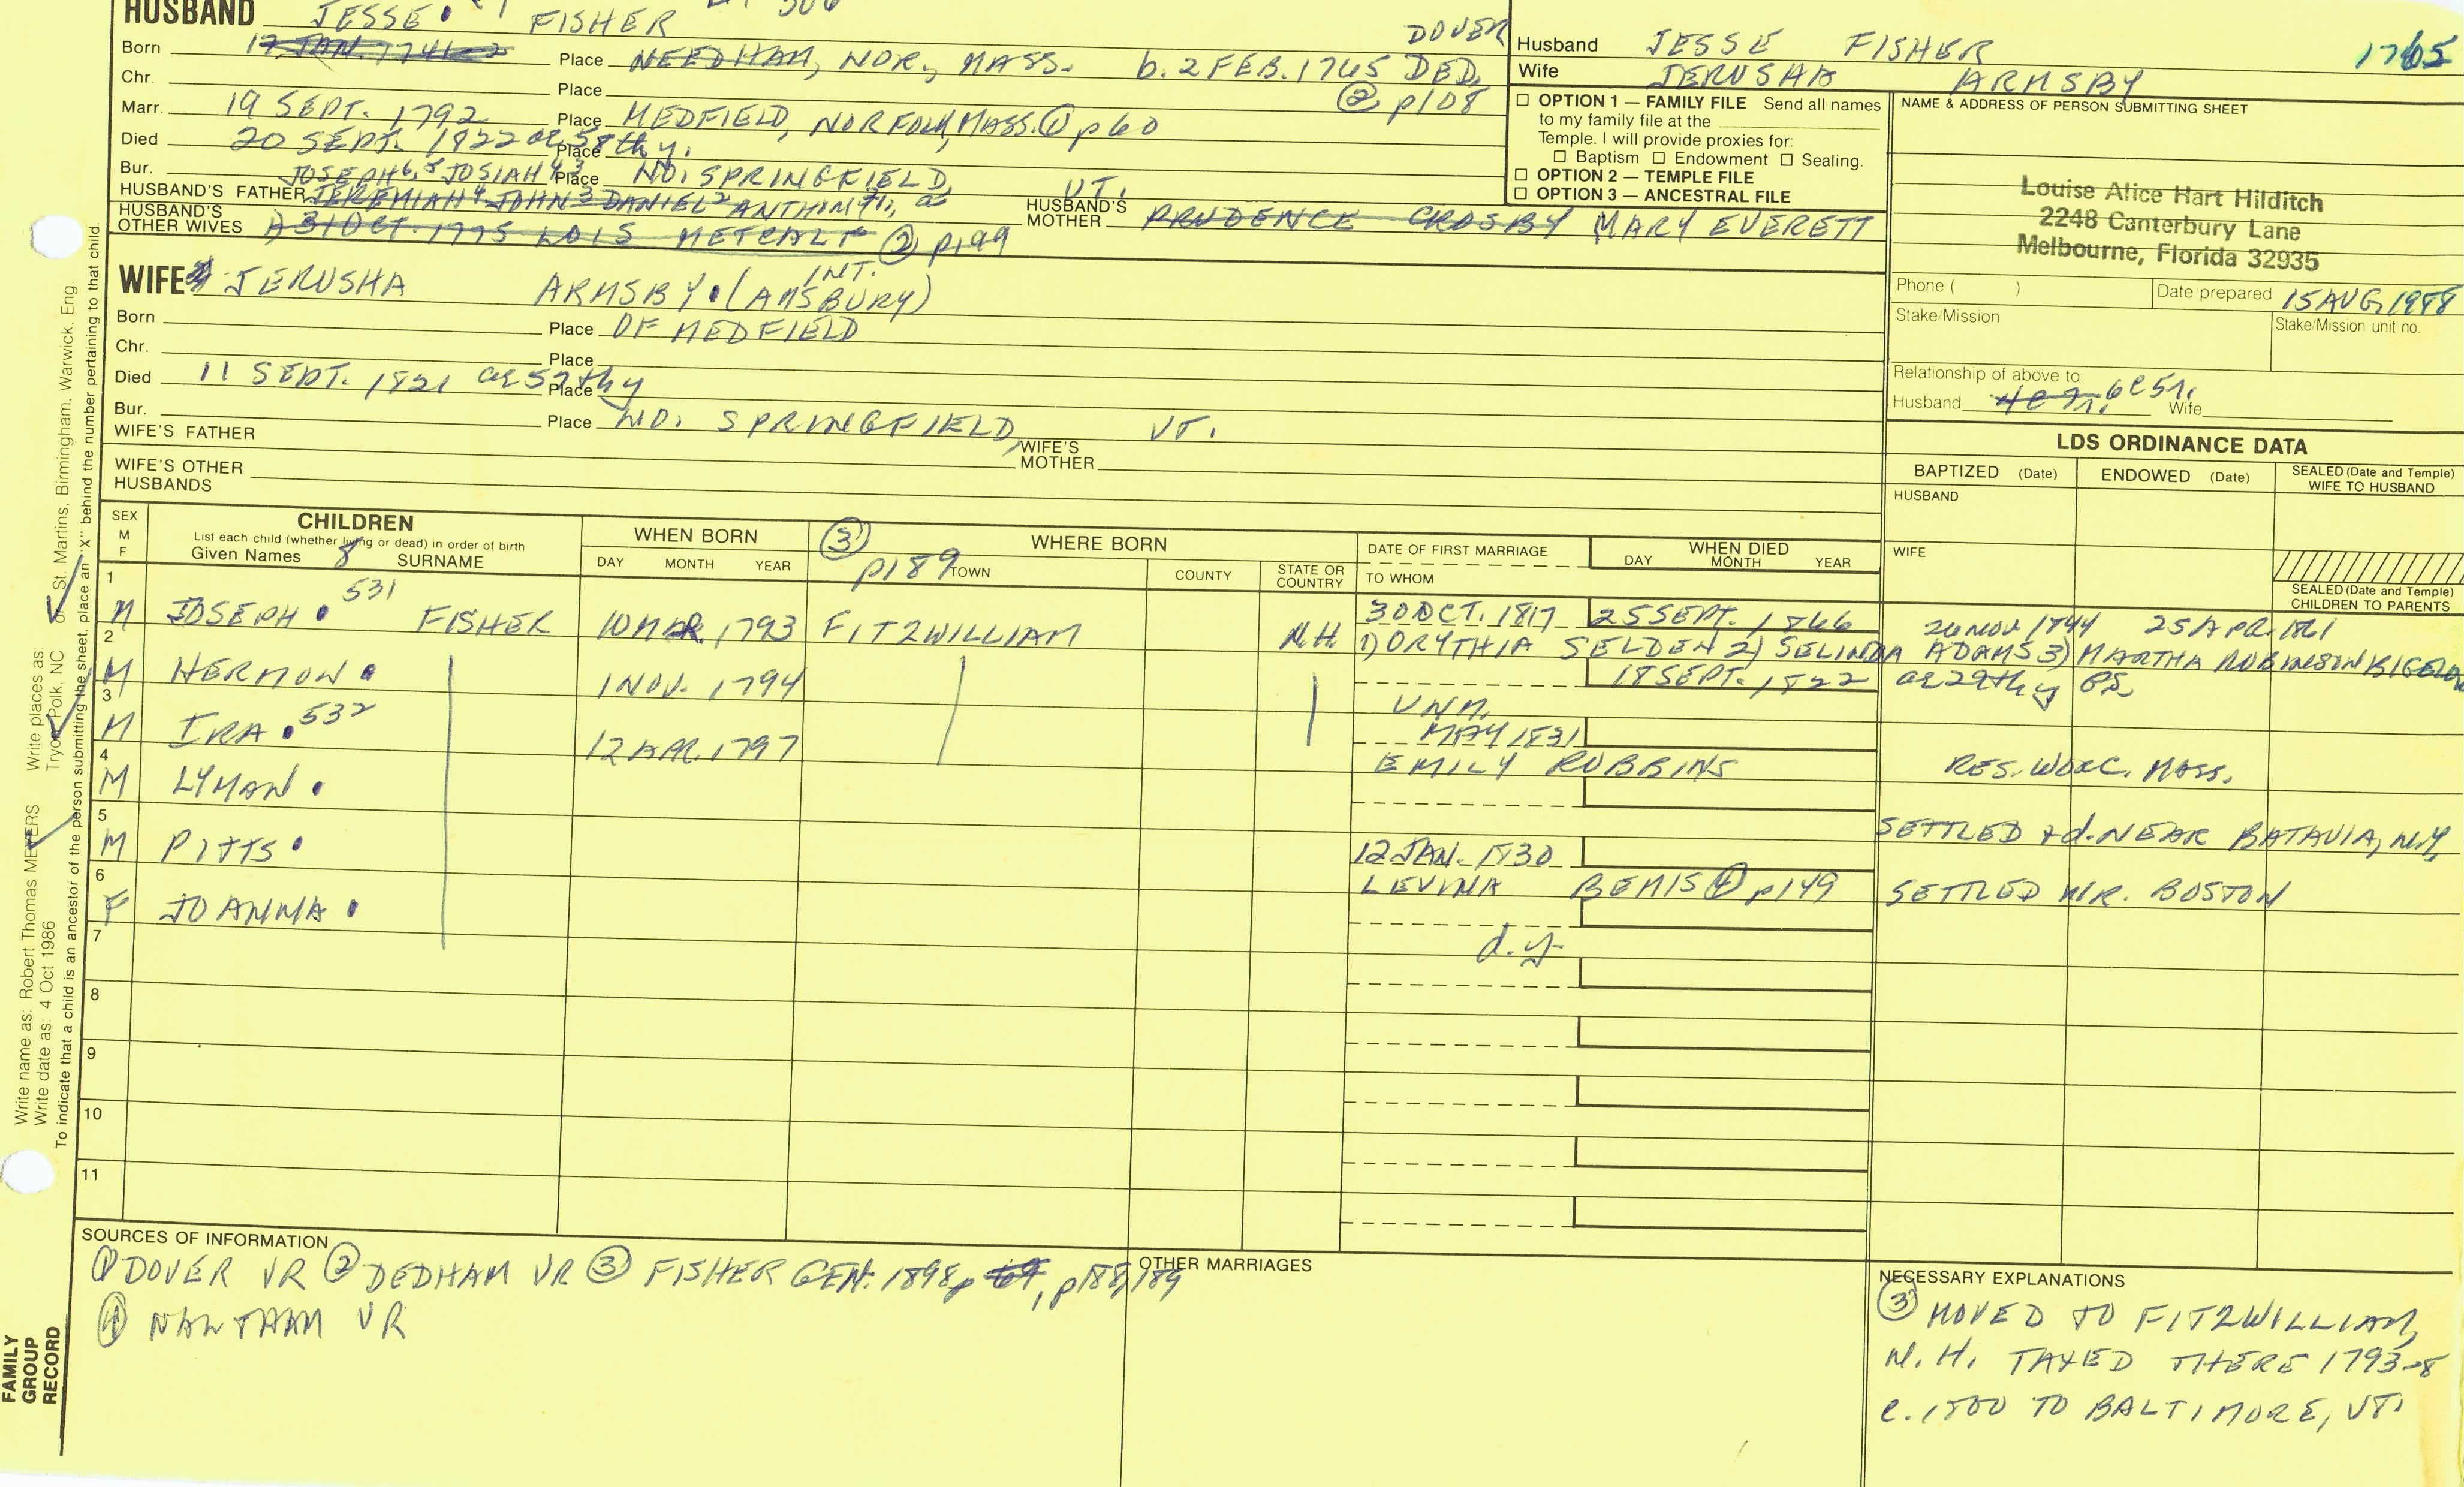 HUSBAND JESSE FISHER
Born 17 JAN. 1741-2 Place NEEDHAM, NOR., MASS. b. 2 FEB. 1765 DED. DOVER
Chr. Place ② p108
Marr. 19 SEPT. 1792 Place MEDFIELD, NORFOLK, MASS. ① p60
Died 20 SEPT. 1822 ae 58th y. Place
Bur. Place NO. SPRINGFIELD, VT.
JOSEPH⁶,⁵ JOSIAH⁴,³
HUSBAND'S FATHER JEREMIAH⁴ JOHN³ DANIEL² ANTHONY¹,
HUSBAND'S MOTHER PRUDENCE CROSBY MARY EVERETT
HUSBAND'S OTHER WIVES A) 31 OCT. 1775 LOIS METCALF ② p199
WIFE JERUSHA ARMSBY (INT. AMSBURY)
Born Place OF MEDFIELD
Chr. Place
Died 11 SEPT. 1821 ae 52thy Place
Bur. Place NO. SPRINGFIELD, VT.
WIFE'S FATHER WIFE'S MOTHER
WIFE'S OTHER HUSBANDS
Husband JESSE FISHER 1765
Wife JERUSHA ARMSBY
☐ OPTION 1 — FAMILY FILE Send all names
to my family file at the
Temple. I will provide proxies for:
☐ Baptism ☐ Endowment ☐ Sealing.
☐ OPTION 2 — TEMPLE FILE
☐ OPTION 3 — ANCESTRAL FILE
NAME & ADDRESS OF PERSON SUBMITTING SHEET
Louise Alice Hart Hilditch
2248 Canterbury Lane
Melbourne, Florida 32935
Phone ( ) Date prepared 15 AUG, 1988
Stake/Mission Stake/Mission unit no.
Relationship of above to
Husband 6C5R. Wife
LDS ORDINANCE DATA
BAPTIZED (Date) ENDOWED (Date) SEALED (Date and Temple) WIFE TO HUSBAND
HUSBAND
WIFE
SEALED (Date and Temple) CHILDREN TO PARENTS
SEX M F
CHILDREN
List each child (whether living or dead) in order of birth
Given Names 8 SURNAME
WHEN BORN
DAY MONTH YEAR
③ p189 WHERE BORN
TOWN COUNTY STATE OR COUNTRY
DATE OF FIRST MARRIAGE
TO WHOM
WHEN DIED
DAY MONTH YEAR
1 M JOSEPH 531 FISHER 10 MAR. 1793 FITZWILLIAM N.H. 30 OCT. 1817 25 SEPT. 1866 26 NOV. 1844 25 APR. 1861
1) ORYTHIA SELDEN 2) SELINDA ADAMS 3) MARTHA ROBINSON BIGELOW
2 M HERMON 1 NOV. 1794 18 SEPT. 1822 ae 29th y GS
UNM.
3 M IRA 532 12 APR. 1797 MAY 1831
EMILY ROBBINS RES. WORC. MASS.
4 M LYMAN
SETTLED + d. NEAR BATAVIA, N.Y.
5 M PITTS 12 JAN. 1830
LEVINA BEMIS ④ p149 SETTLED NR. BOSTON
6 F JOANNA
d.y.
7
8
9
10
11
SOURCES OF INFORMATION
① DOVER VR ② DEDHAM VR ③ FISHER GEN. 1898, p 69, p188,189
④ WALTHAM VR
OTHER MARRIAGES
NECESSARY EXPLANATIONS
③ MOVED TO FITZWILLIAM,
N.H. TAXED THERE 1793-8
c. 1800 TO BALTIMORE, VT.
Write name as: Robert Thomas MEYERS Write places as: St. Martins, Birmingham, Warwick, Eng
Write date as: 4 Oct 1986 Tryon, Polk, NC
To indicate that a child is an ancestor of the person submitting the sheet, place an "X" behind the number pertaining to that child.
FAMILY
GROUP
RECORD